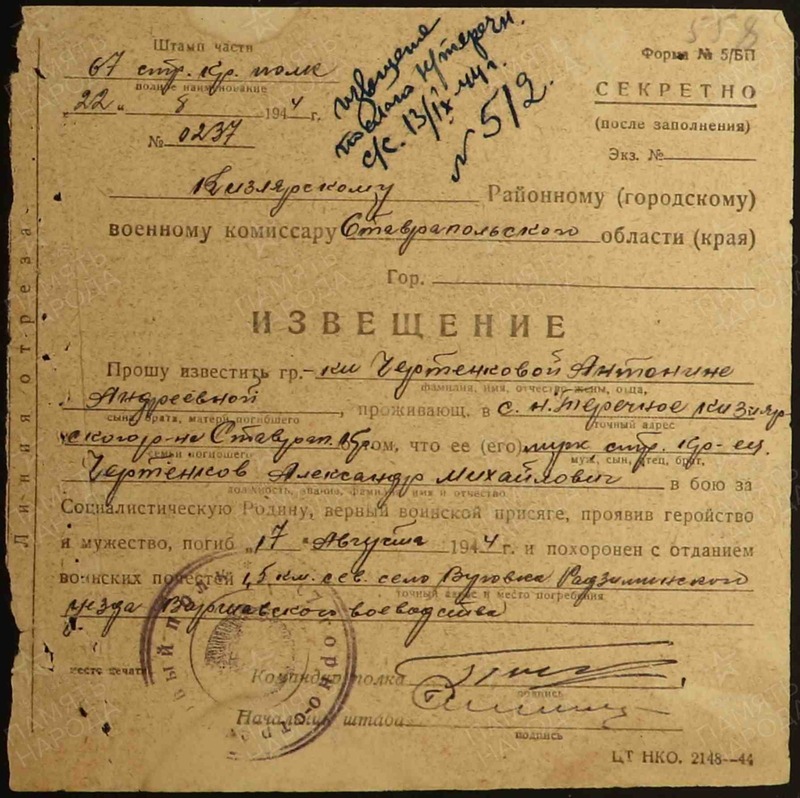 558
Штамп части
Форма № 5/БП
67 стр. кр. полк
полное наименование
СЕКРЕТНО
"22" 8 1944 г.
(после заполнения)
№ 0237
Экз. №
извещение
послано
с/с. 13/IX 44 г.
N 512.
Кизлярскому Районному (городскому)
военному комиссару Ставрапольского области (края)
Гор.
ИЗВЕЩЕНИЕ
Прошу известить гр.-ки Чертенковой Антонине
фамилия, имя, отчество жены, отца,
Андреевной, проживающ. в с. н. Теречное Кизляр-
сына, брата, матери погибшего точный адрес
ского р-на Ставрап. кр. том, что ее (его) муж стр. кр-ец.
семьи погибшего муж, сын, отец, брат,
Чертенков Александр Михайлович в бою за
должность, звание, фамилия, имя и отчество
Социалистическую Родину, верный воинской присяге, проявив геройство
и мужество, погиб "17" Августа 1944 г. и похоронен с отданием
воинских почестей 1,5 км. сев. село Радзиминского
точный адрес и место погребения
уезда Варшавского воеводства
место печати
Командир полка
подпись
Начальник штаба
подпись
ЦТ НКО. 2148—44
Линия отреза
ПАМЯТЬ НАРОДА